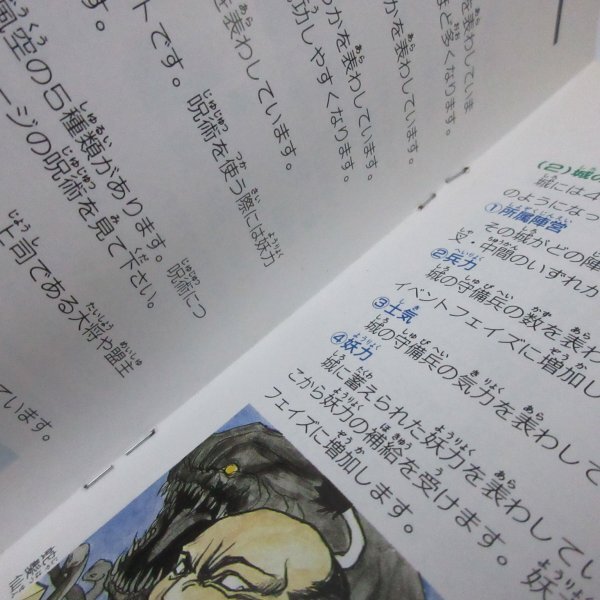 を表わしていま
ほど多くなります。
かを表わしています。
功しやすくなります。
を表わしています。
トです。
呪術を使う際には妖力
風空の５種類があります。呪術につ
ージの呪術を見て下さい。
上司である大将や盟主
ています。
(2) 城の
城には４
のようになっ
①所属陣営
その城がどの陣
・中間のいずれか
②兵力
城の守備兵の数を表わ
イベントフェイズに増加し
③士気
城の守備兵の気力を表わして
④妖力
城に蓄えられた妖力を表わしてい
こから妖力の補給を受けます。妖
フェイズに増加します。